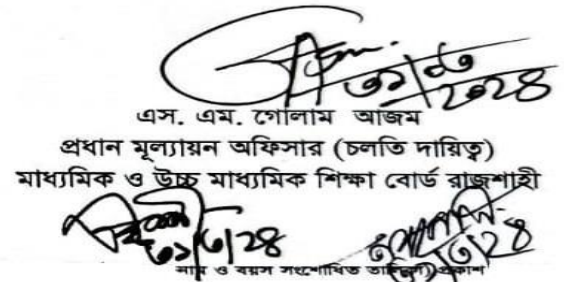 ৩১/০৩
২০২৪
এস. এম. গোলাম আজম
প্রধান মূল্যায়ন অফিসার (চলতি দায়িত্ব)
মাধ্যমিক ও উচ্চ মাধ্যমিক শিক্ষা বোর্ড রাজশাহী
৩১/৩/২৪
৩/২৪
নাম ও বয়স সংশোধিত তালিকা প্রকাশ